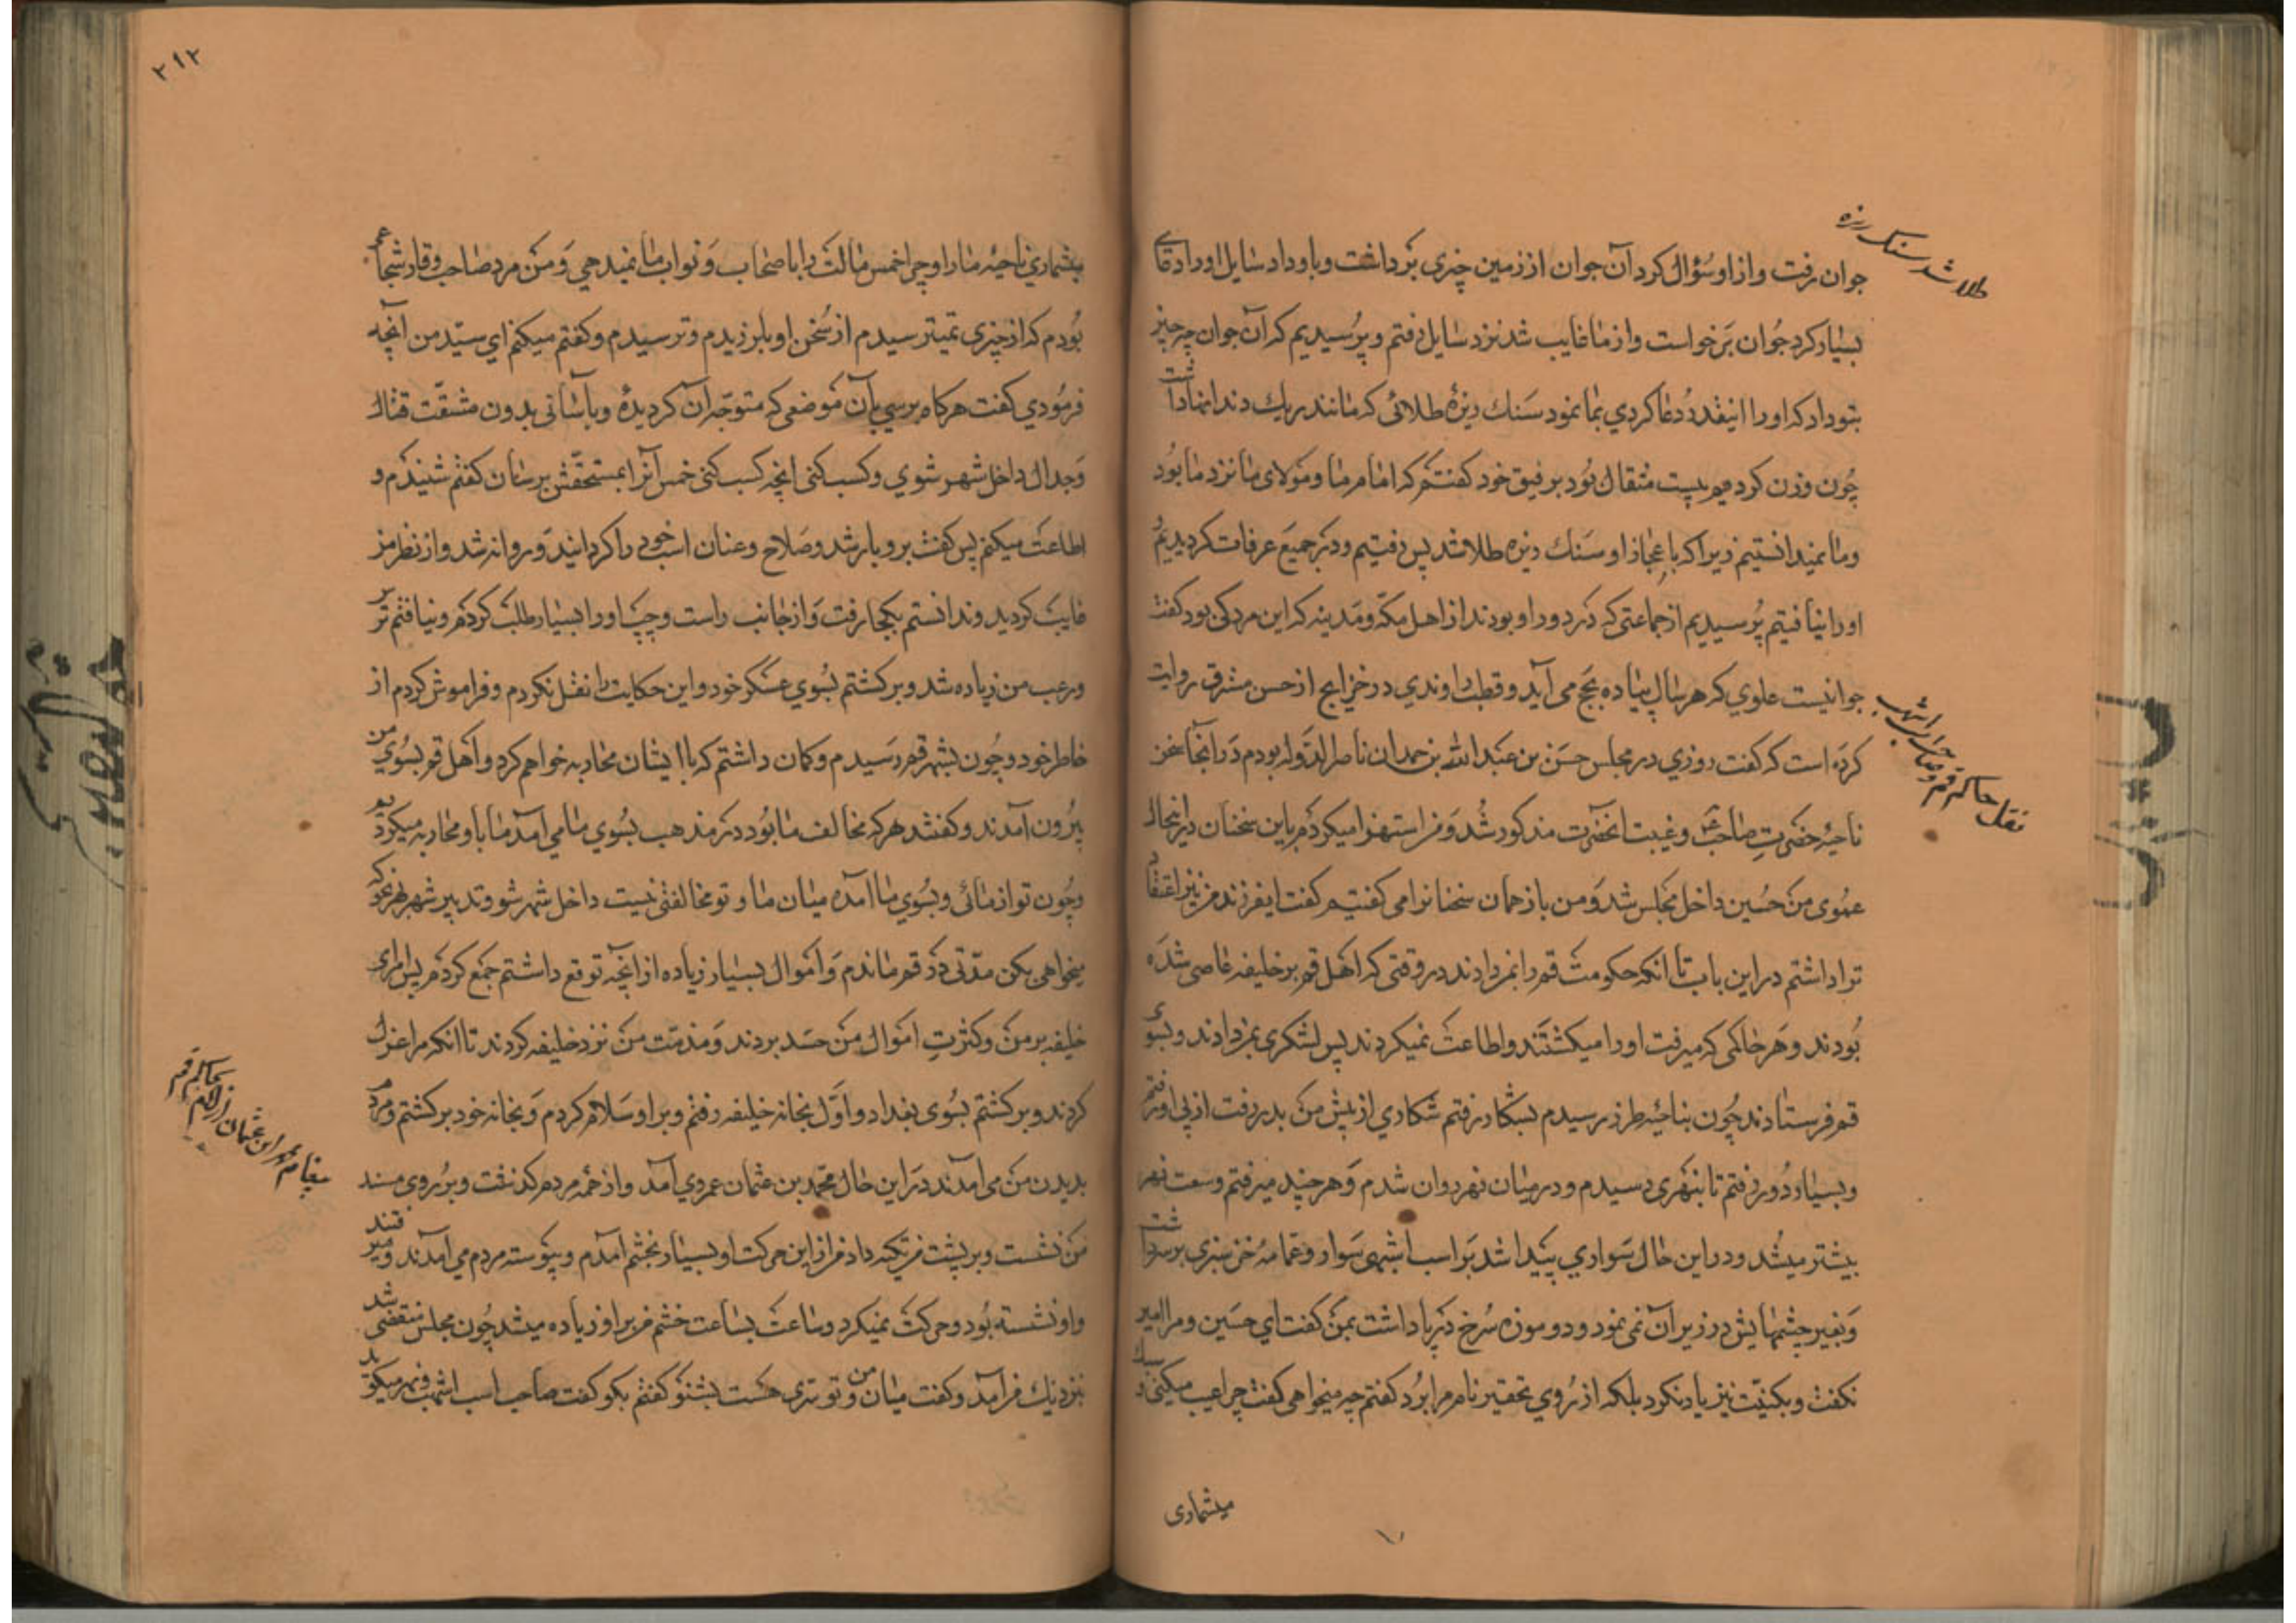 طلا شد سنک ریزه
جوان رفت و از او سؤال کرد آن جوان از زمین چیزی برداشت و باو داد سایل او را دعای
بسیار کرد جوان برخواست و از ما غایب شد نزد سایل رفتم و پرسیدیم که آن جوان چه چیز
بتو داد که او را اینقدر دعا کردی بما نمود سنک ریزهٔ طلائی که مانند ریک دندانها داشت
چون وزن کردیم بیست مثقال بود برفیق خود کفتم که امام ما و مولای ما نزد ما بود
و ما نمیدانستیم زیرا که باعجاز او سنک ریزه طلا شد پس رفتیم و در جمیع عرفات کردیدیم
او را نیافتیم پرسیدیم از جماعتی که در دور او بودند از اهل مکّه و مدینه که این مرد کی بود کفتند
جوانیست علوی که هر سال پیاده بحج می آید و قطب راوندی در خرایج از حسن مشرق روایت
نقل حاکم قم و صاحب اسب اشهب
کرده است که کفت روزی در مجلس حسن بن عبد الله بن حمدان ناصر الدوله بودم در آنجا سخن
ناحیهٔ حضرت صاحب ع و غیبت آنحضرت مذکور شد و من استهزا میکردم باین سخنان در اینحال
عموی من حسین داخل مجلس شد و من باز همان سخنانرا می کفتم کفت ایفرزند من نیز اعتقاد
ترا داشتم در این باب تا آنکه حکومت قم را بمن دادند در وقتی که اهل قم بر خلیفه عاصی شده
بودند و هر حاکمی که میرفت او را میکشتند و اطاعت نمیکردند پس لشکری بمن دادند و بسوی
قم فرستادند چون بناحیهٔ طرز رسیدم بشکار رفتم شکاری از پیش من بدر رفت از پی او رفتم
و بسیار دور رفتم تا بنهری رسیدم و در میان نهر روان شدم و هر چند میرفتم وسعت نهر
بیشتر میشد و در این حال سواری پیدا شد بر اسب اشهبی سوار و عمامهٔ خز سبزی بر سر داشت
و بغیر چشمهایش در زیر آن نمی نمود و دو موزه سرخ در پا داشت بمن کفت ای حسین و مرا امیر
نکفت و بکنیت نیز یاد نکرد بلکه از روی تحقیر نام مرا برد کفتم چه میخواهی کفت چرا عیب میکنی و سبک
میشماری
۲۱۲
میشماری ناحیهٔ ما را و چرا خمس مالت را باصحاب و نواب ما نمیدهی و من مرد صاحب وقار شجاعی
بودم که از چیزی نمیترسیدم از سخن او بلرزیدم و ترسیدم و کفتم میکنم ای سیّد من آنچه
فرمودی کفت هرکاه برسی بآن موضعی که متوجّه آن کردیدهٔ و بآسانی بدون مشقّت قتال
و جدال داخل شهر شوی و کسب کنی آنچه کسب کنی خمس آنرا بمستحقّش برسان کفتم شنیدم و
اطاعت میکنم پس کفت برو با رشد و صلاح و عنان اسب خود را کردانید و روانه شد و از نظر من
غایب کردید و ندانستم بکجا رفت و از جانب راست و چپ او را بسیار طلب کردم و نیافتم ترس
و رعب من زیاده شد و برکشتم بسوی عسکر خود و این حکایت را نقل نکردم و فراموش کردم از
خاطر خود و چون بشهر قم رسیدم و کمان داشتم که با ایشان محاربه خواهم کرد و اهل قم بسوی من
بیرون آمدند و کفتند هر که مخالف ما بود در مذهب بسوی ما می آمد ما با او محاربه میکردیم
و چون تو از مائی و بسوی ما آمدهٔ میان ما و تو مخالفتی نیست داخل شهر شو و تدبیر شهر بهر نحو که
میخواهی بکن مدّتی در قم ماندم و اموال بسیار زیاده از آنچه توقع داشتم جمع کردم پس امرای
خلیفه بر من و کثرت اموال من حسد بردند و مذمّت من نزد خلیفه کردند تا آنکه مرا عزل
کردند و برکشتم بسوی بغداد و اوّل بخانه خلیفه رفتم و بر او سلام کردم و بخانه خود برکشتم و مردم
بدیدن من می آمدند در این حال محمد بن عثمان عمروی آمد و از همه مردم کذشت و بر روی مسند
من نشست و بر پشت من تکیه داد من از این حرکت او بسیار بخشم آمدم و پیوسته مردم می آمدند و میرفتند
و او نشسته بود و حرکت نمیکرد و ساعت بساعت خشم من بر او زیاده میشد چون مجلس منقضی شد
نزدیک من آمد و کفت میان من و تو سرّی هست بشنو کفتم بکو کفت صاحب اسب اشهب و نهر میکوید